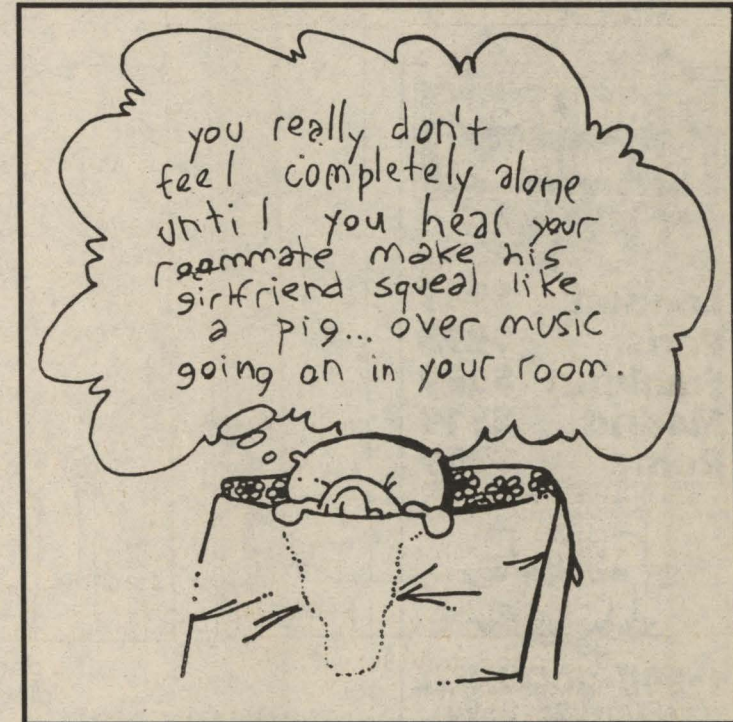 you really don't
feel completely alone
until you hear your
roommate make his
girlfriend squeal like
a pig... over music
going on in your room.